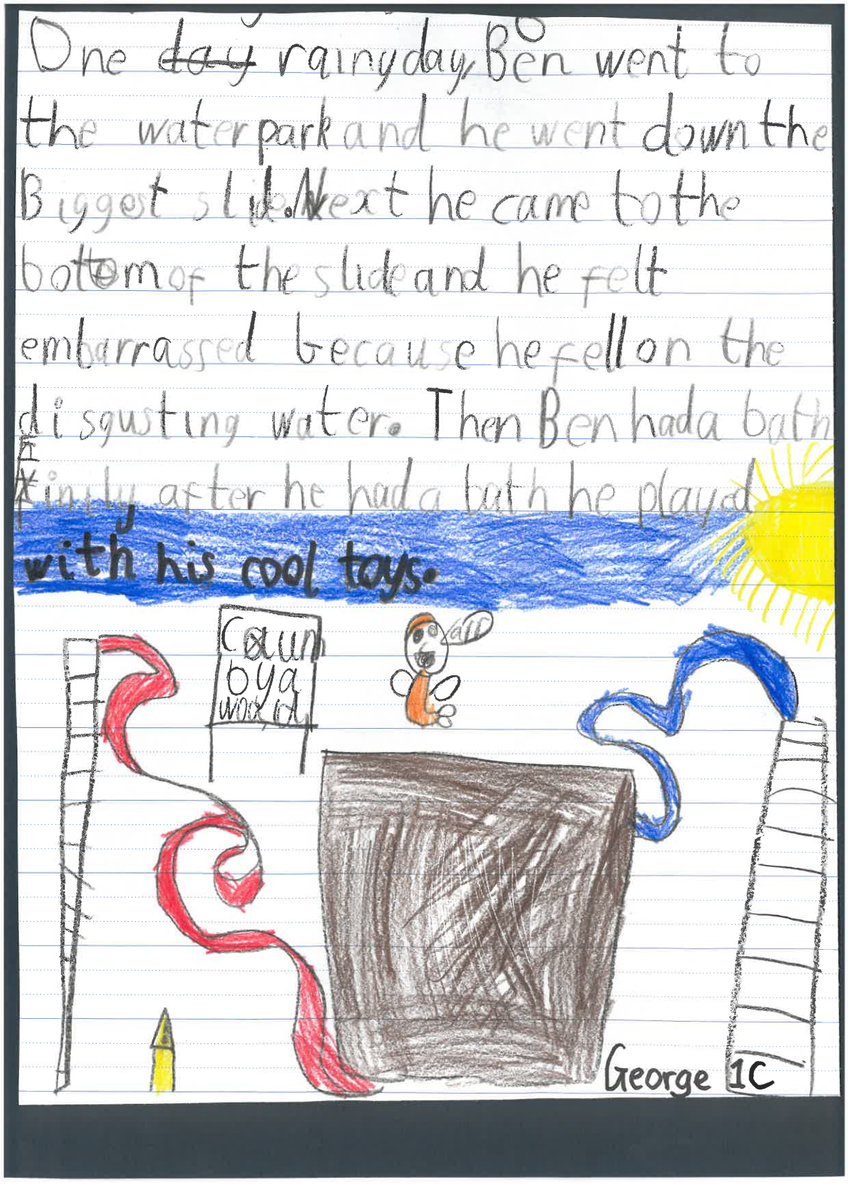 One day rainy day, Ben went to
the water park and he went down the
Biggest slid. Next he came to the
bottom of the slide and he felt
embarrassed because he fell on the
disgusting water. Then Ben had a bath
Finlly after he had a bath he played
with his cool toys.
George 1C